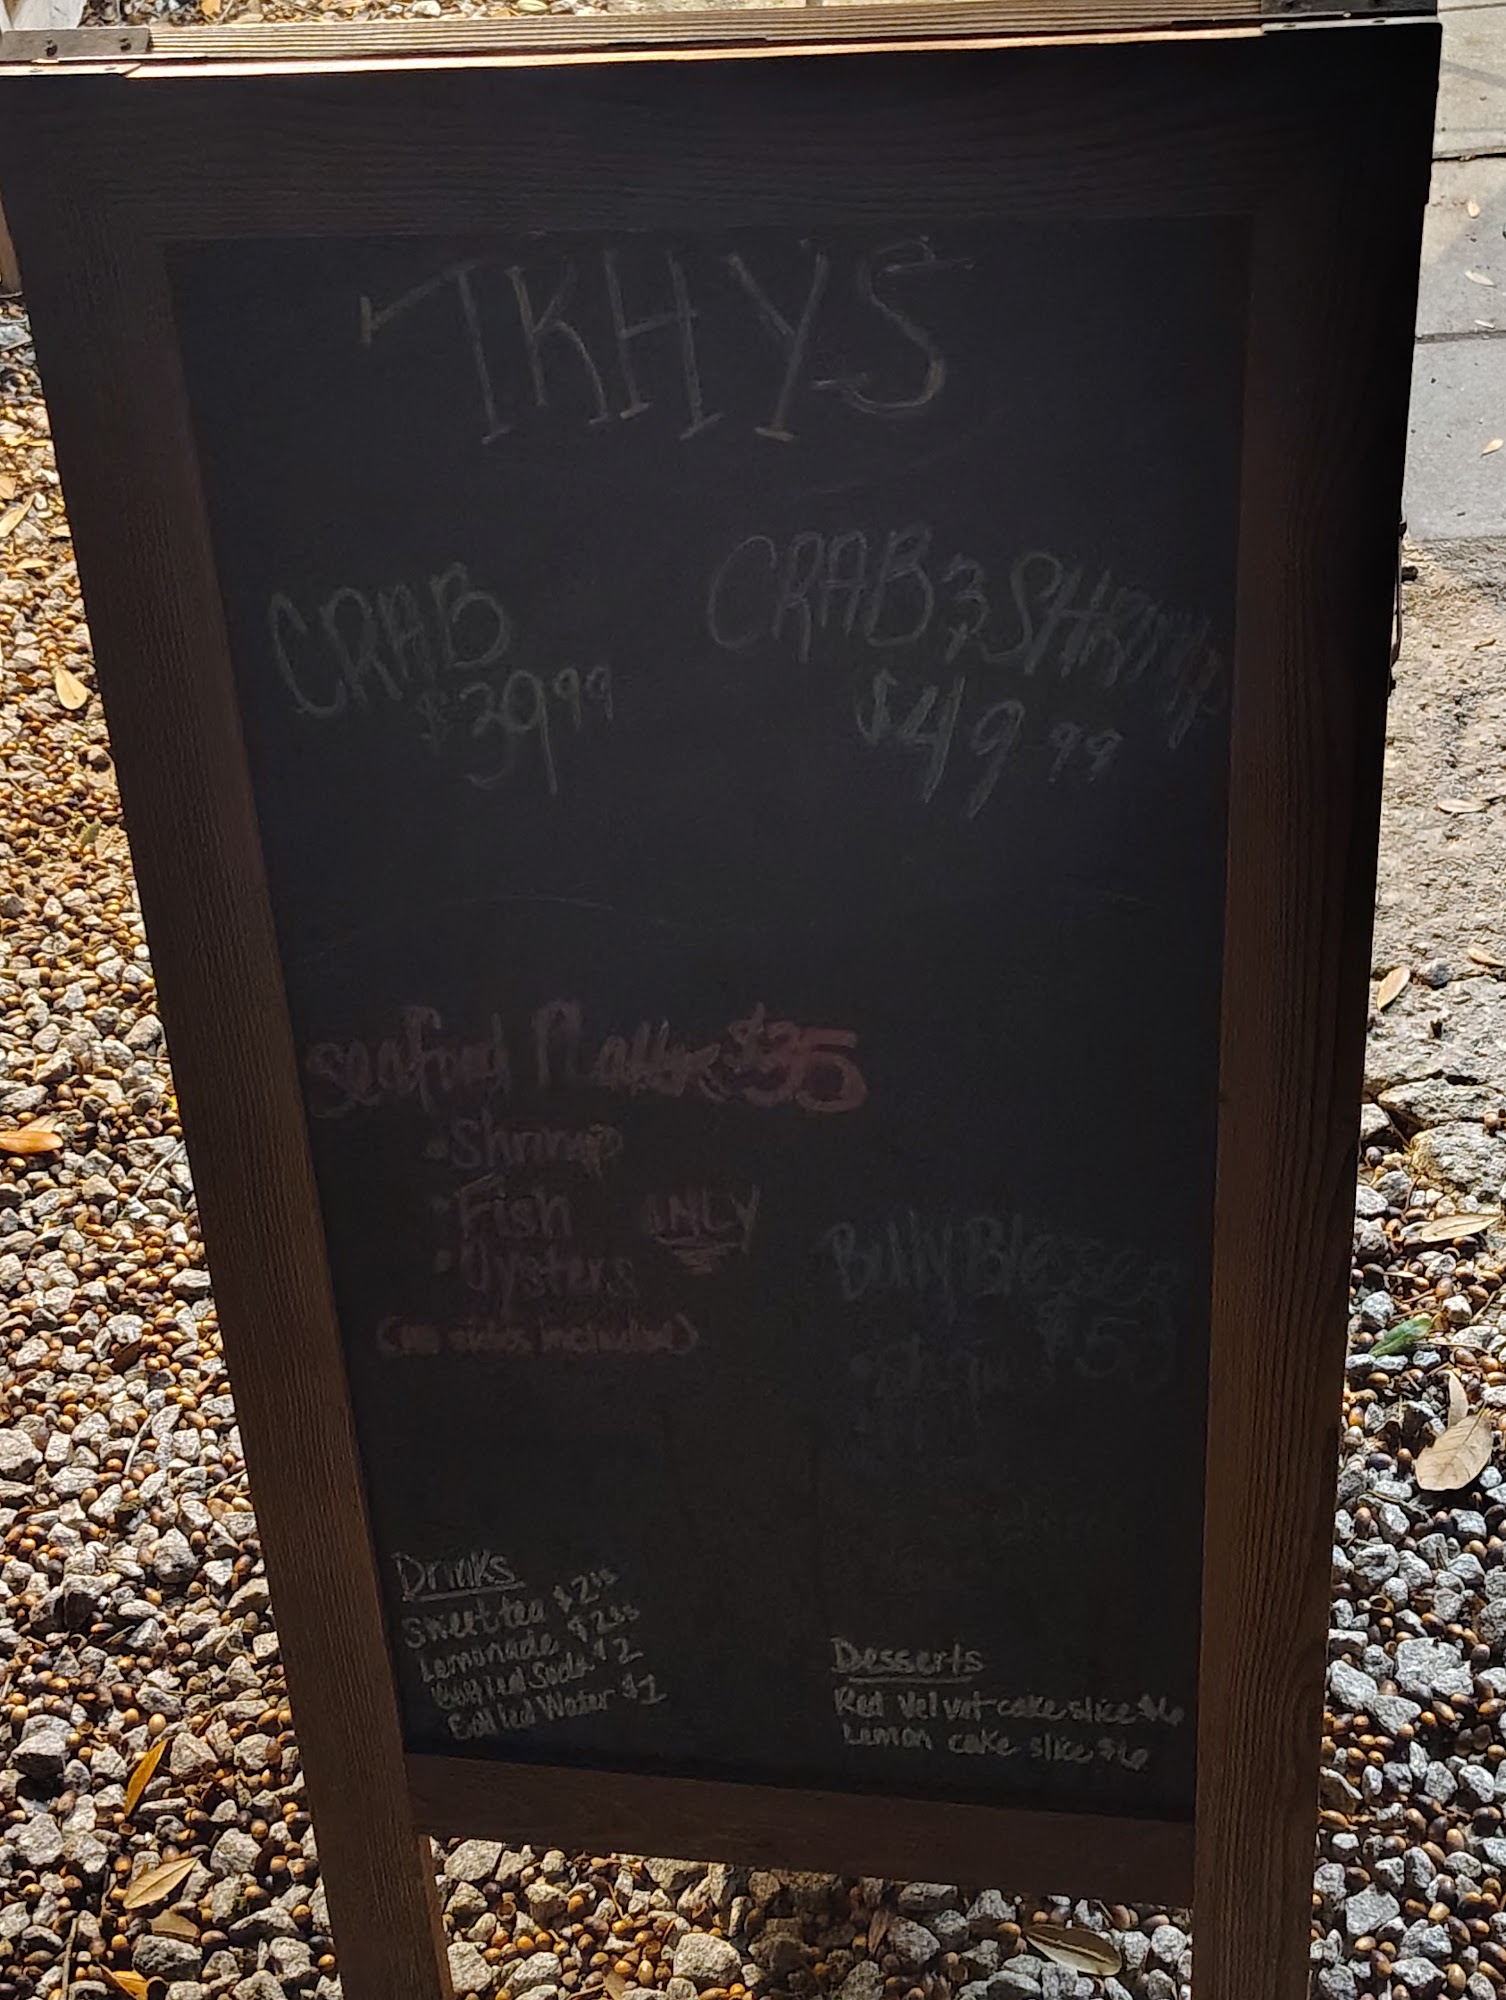 TKHYS
CRAB
$39.99
CRAB & SHRIMP
$49.99
Seafood Platter $35
• Shrimp
• Fish
ONLY
• Oysters
(no sides included)
Belly Blessed
Drinks
Sweet tea
Lemonade
Bottled Soda $2
Bottled Water $1
Desserts
Red Velvet cake slice $6
Lemon cake slice $6